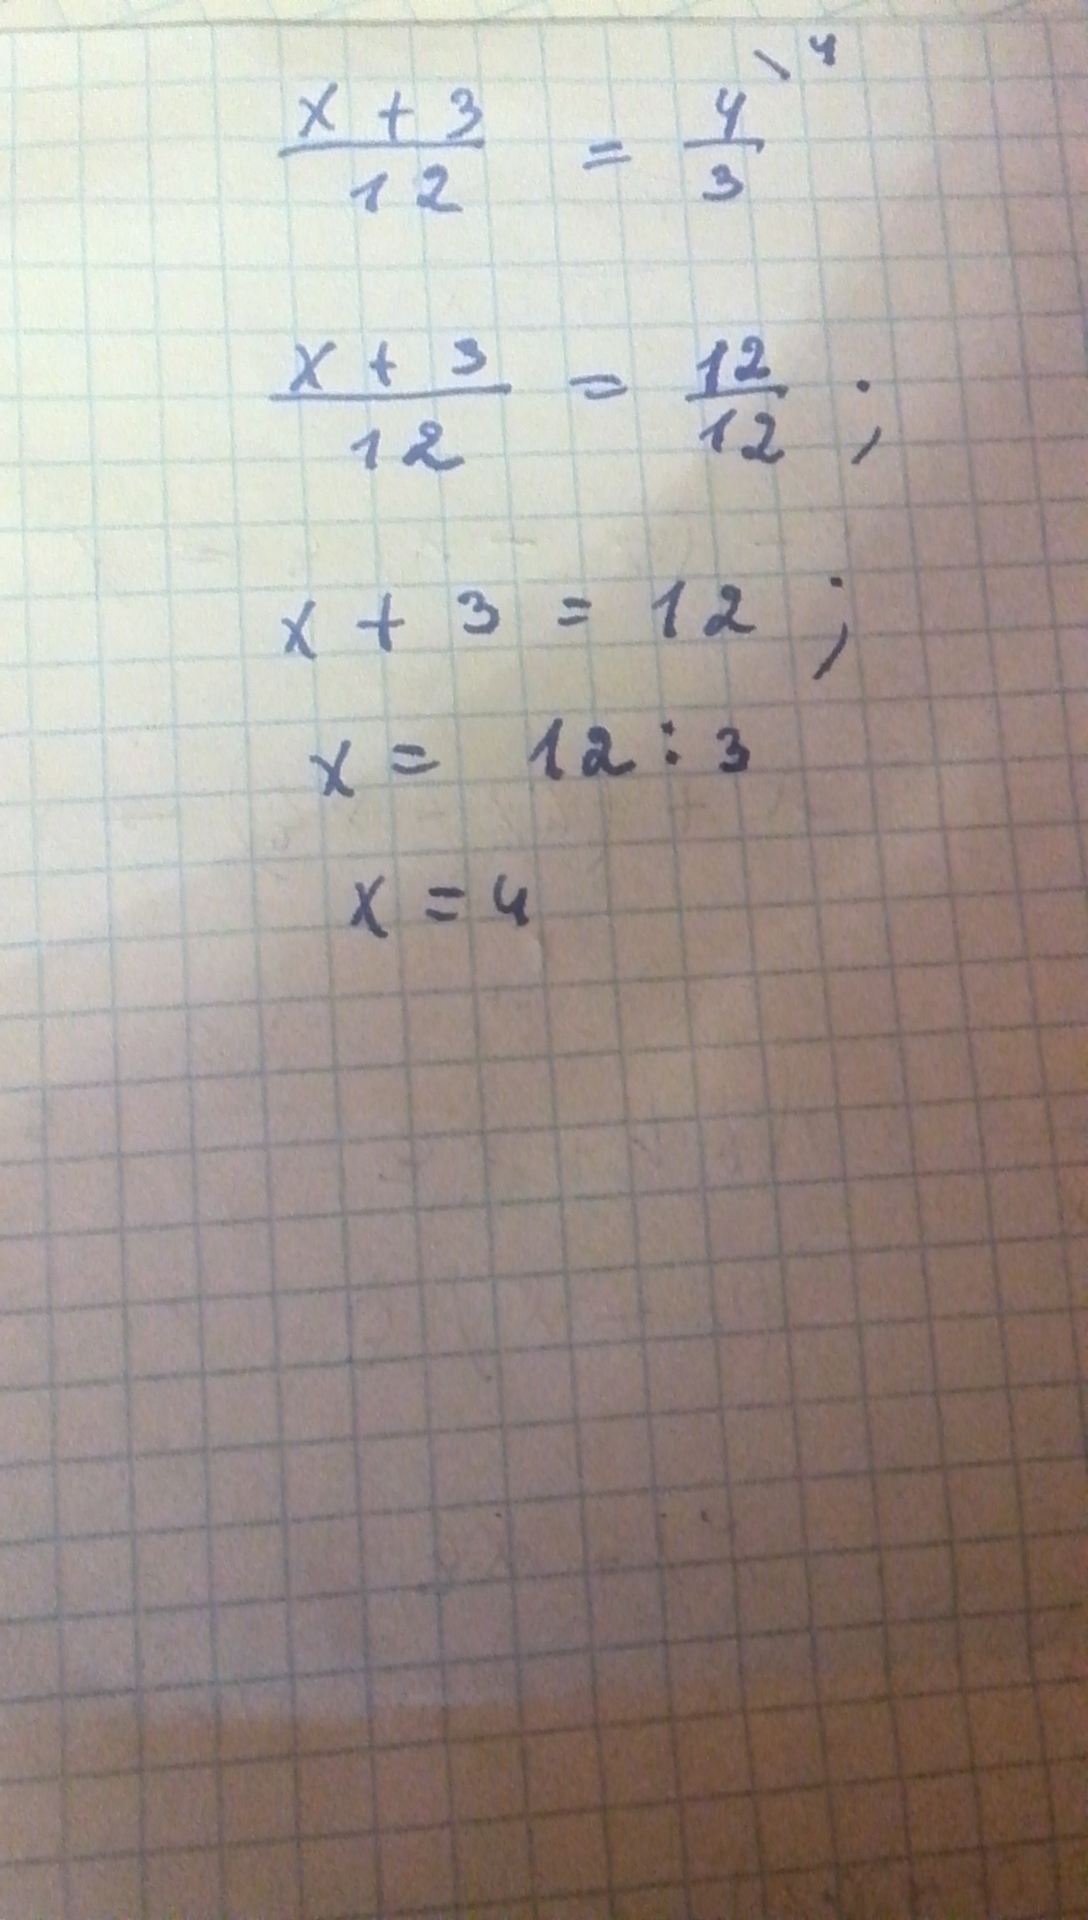 x + 3 / 12 = 4 / 3 \ 4
x + 3 / 12 = 12 / 12 ;
x + 3 = 12 ;
x = 12 : 3
x = 4